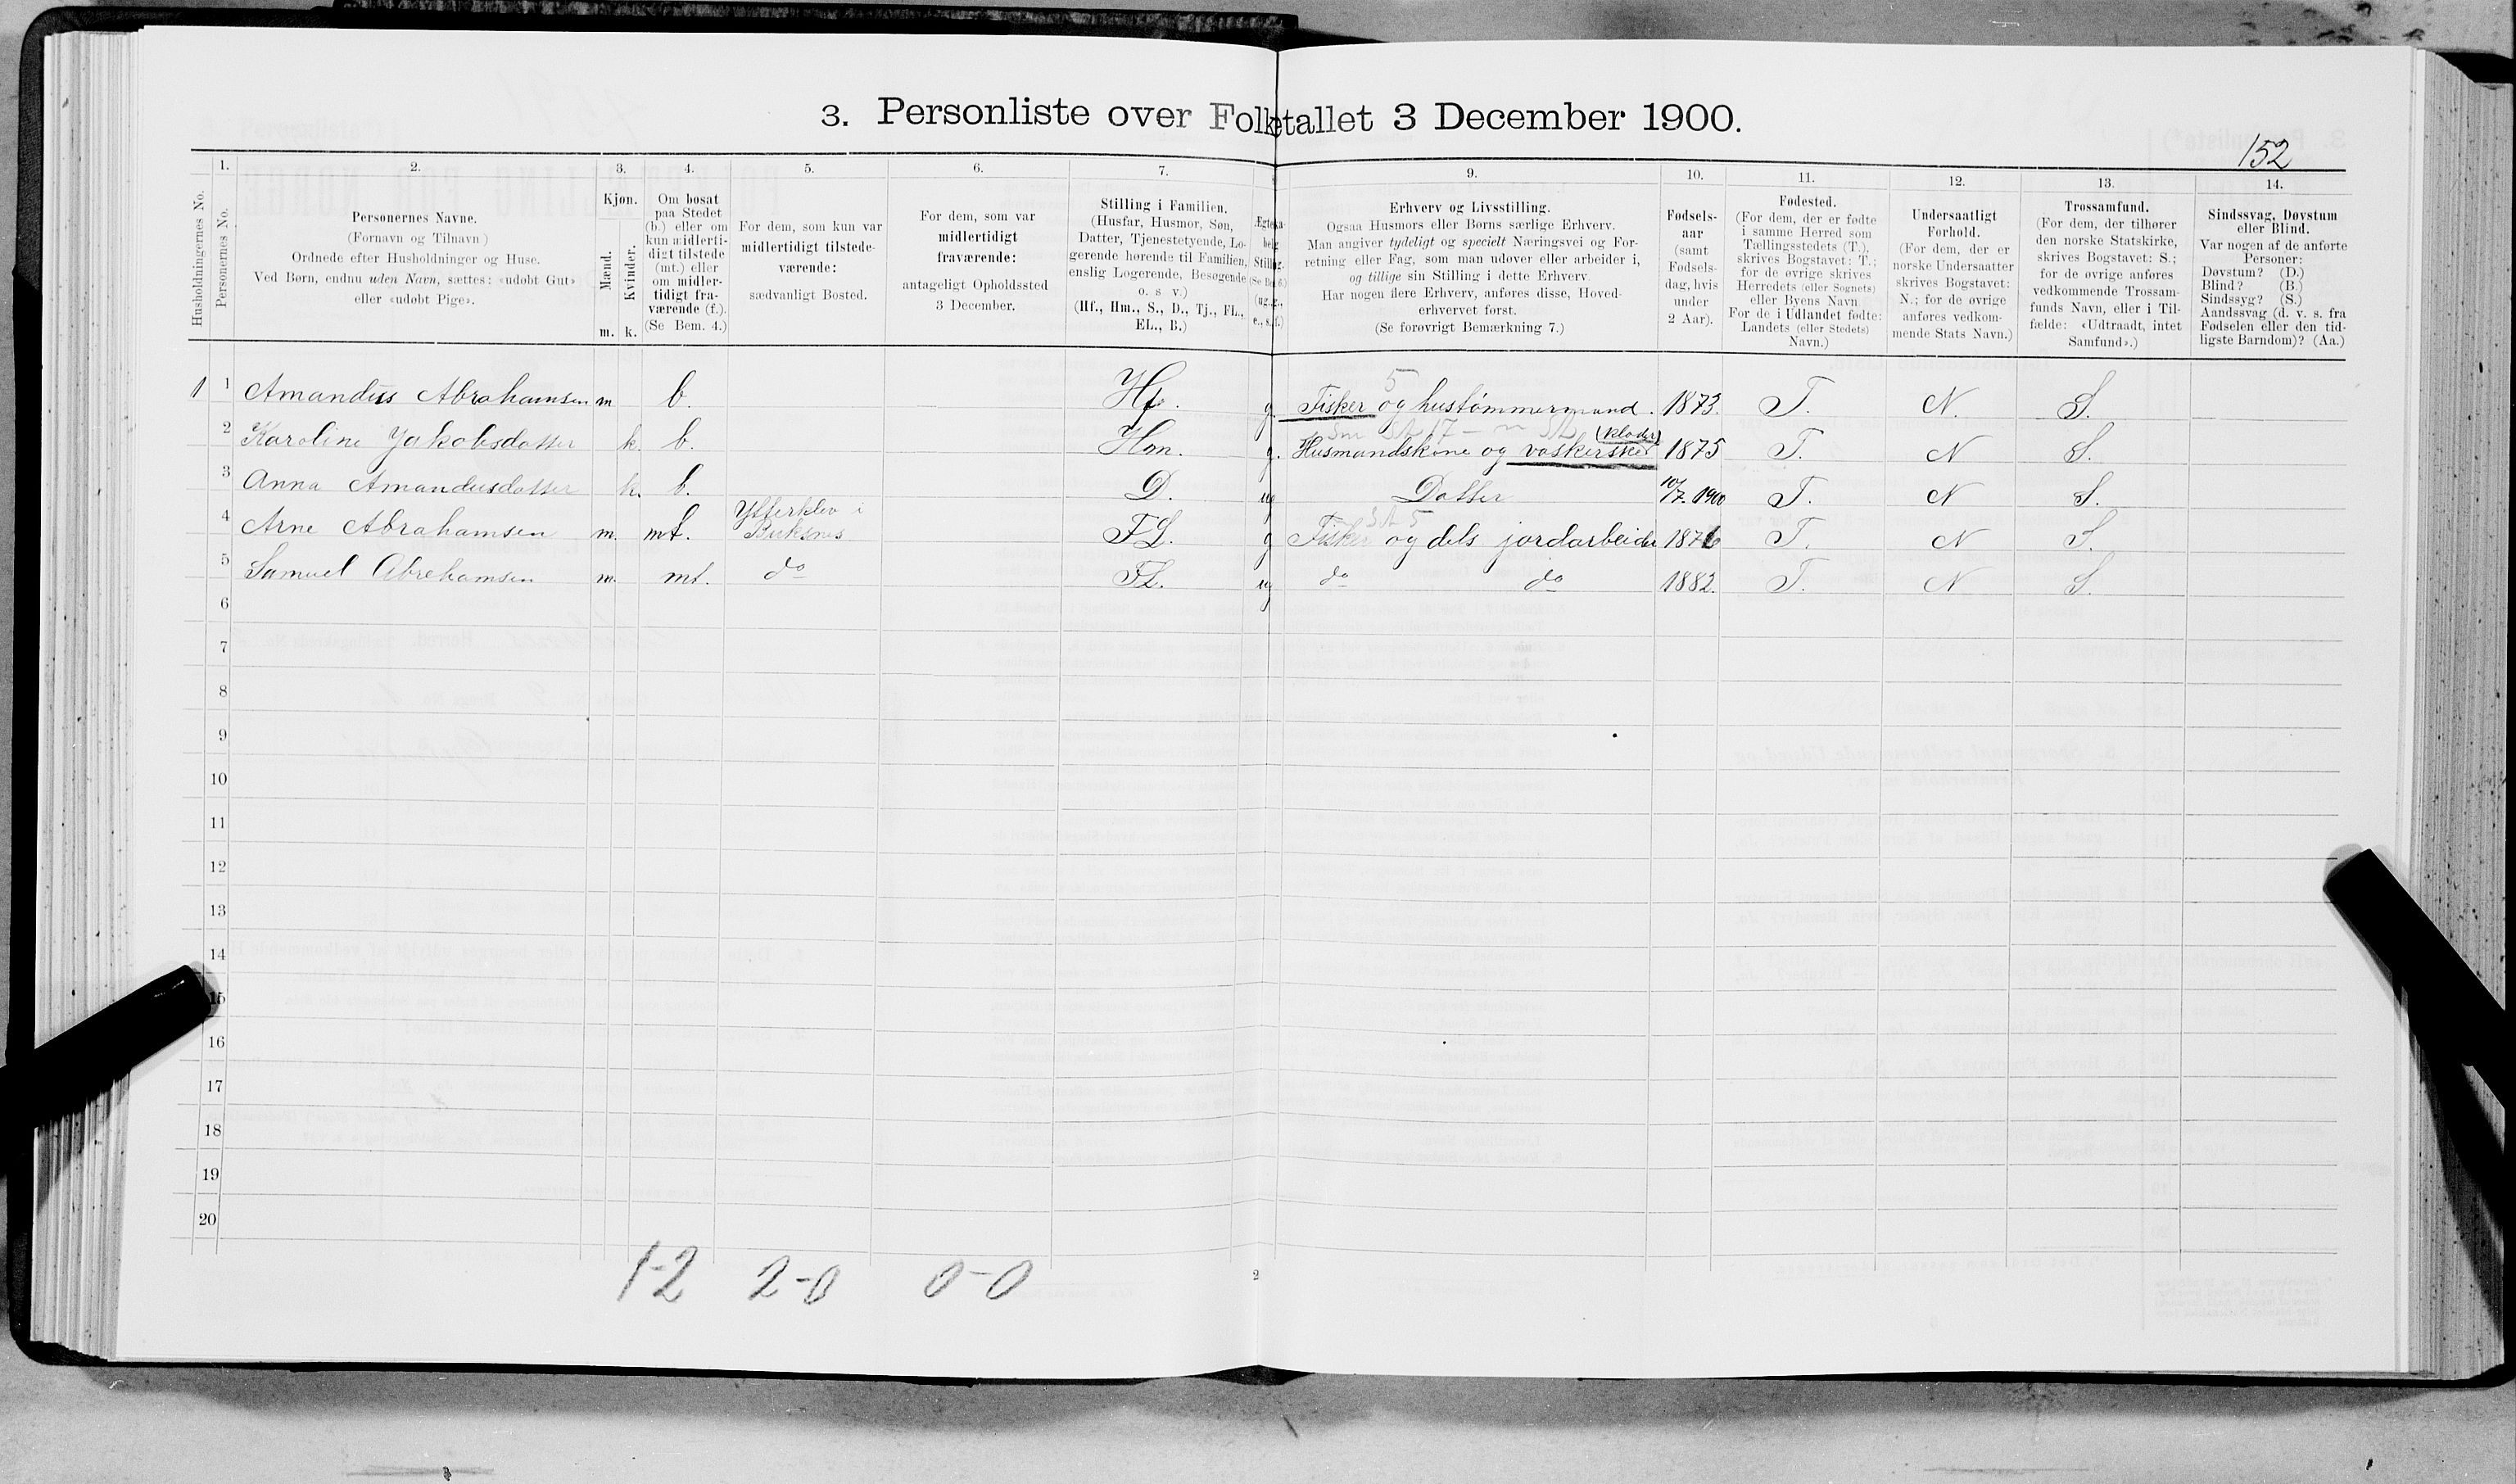 3. Personliste over Folketallet 3 December 1900.
152
Husholdningernes No.
1.
Personernes No.
2.
Personernes Navne.
(Fornavn og Tilnavn)
Ordnede efter Husholdninger og Huse.
Ved Børn, endnu uden Navn, sættes: «udøbt Gut»
eller «udøbt Pige».
3.
Kjøn.
Mænd.
Kvinder.
m. k.
4.
Om bosat
paa Stedet
(b.) eller om
kun midlerti-
digt tilstede
(mt.) eller
om midler-
tidigt fra-
værende (f.).
(Se Bem. 4.)
5.
For dem, som kun var
midlertidigt tilstede-
værende:
sædvanligt Bosted.
6.
For dem, som var
midlertidigt
fraværende:
antageligt Opholdssted
3 December.
7.
Stilling i Familien.
(Husfar, Husmor, Søn,
Datter, Tjenestetyende, Lo-
gerende hørende til Familien,
enslig Logerende, Besøgende
o. s v.)
(Hf., Hm., S., D., Tj., FL.,
EL., B.)
Ægteska-
belig
Stilling.
(Se Bem. 6.)
(ug., g.,
e., s., f.)
9.
Erhverv og Livsstilling.
Ogsaa Husmors eller Børns særlige Erhverv.
Man angiver tydeligt og specielt Næringsvei og For-
retning eller Fag, som man udøver eller arbeider i,
og tillige sin Stilling i dette Erhverv.
Har nogen flere Erhverv, anføres disse, Hoved-
erhvervet først.
(Se forøvrigt Bemærkning 7.)
10.
Fødsels-
aar
(samt
Fødsels-
dag, hvis
under
2 Aar).
11.
Fødested.
(For dem, der er fødte
i samme Herred som
Tællingsstedets (T.),
skrives Bogstavet: T.;
for de øvrige skrives
Herredets (eller Sognets)
eller Byens Navn.
For de i Udlandet fødte:
Landets (eller Stedets)
Navn.)
12.
Undersaatligt
Forhold.
(For dem, der er
norske Undersaatter
skrives Bogstavet:
N.; for de øvrige
anføres vedkom-
mende Stats Navn.)
13.
Trossamfund.
(For dem, der tilhører
den norske Statskirke,
skrives Bogstavet: S.;
for de øvrige anføres
vedkommende Trossam-
funds Navn, eller i Til-
fælde: «Udtraadt, intet
Samfund».)
14.
Sindssvag, Døvstum
eller Blind.
Var nogen af de anførte
Personer:
Døvstum? (D.)
Blind? (B.)
Sindssyg? (S.)
Aandssvag (d. v. s. fra
Fødselen eller den tid-
ligste Barndom)? (Aa.)
5
1 1 Amandus Abrahamsen m b. Hf. g. Fisker og hustømmermand. 1873. T. N. S.
(klæder)
2 Karoline Jakobsdatter k. b. Hm. g. Husmandskone og vaskerske 1875 T. N S.
3 Anna Amandusdatter k. b. D. ug Datter 10/7. 1900 T. N S.
Ytterklev i
4 Arne Abrahamsen m. mt. Buksnes FL. g Fisker og dels jordarbeider 1876 T. N S.
5 Samuel Abrahamsen m. mt. do FL. ug do do 1882. T. N S.
6
7
8
9
10
11
12
13
14
15
16
17
18
19
20
1-2 2-0 0-0
2